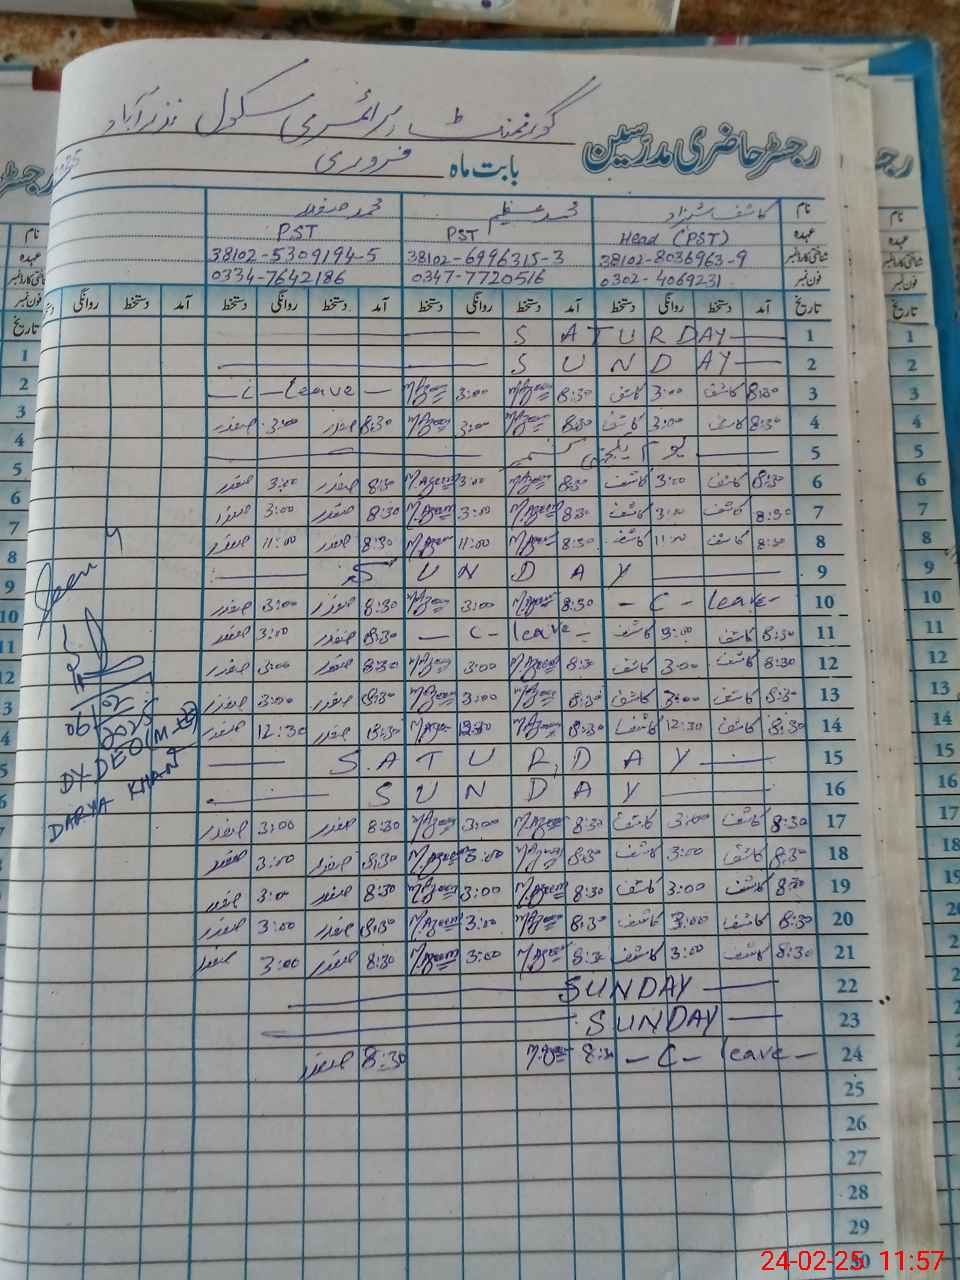 گورنمنٹ پرائمری سکول نذر آباد
رجسٹر حاضری مدرسین
بابت ماہ فروری
نام کاشف شہزاد محمد عظیم محمد صفدر
عہدہ Head (PST) PST PST
شناختی کارڈ نمبر 38102-8036963-9 38102-6996315-3 38102-5309194-5
فون نمبر 0302-4069231 0347-7720516 0334-7642186
تاریخ آمد دستخط روانگی دستخط آمد دستخط روانگی دستخط آمد دستخط روانگی دستخط آمد دستخط روانگی دستخط
1 SATURDAY
2 SUNDAY
3 8:30 کاشف 3:00 کاشف 8:30 M.Azeem 3:00 M.Azeem - C - Leave -
4 8:30 کاشف 3:00 کاشف 8:30 M.Azeem 3:00 M.Azeem 8:30 صفدر 3:00 صفدر
5 یوم یکجہتی کشمیر
6 8:30 کاشف 3:00 کاشف 8:30 M.Azeem 3:00 M.Azeem 8:30 صفدر 3:00 صفدر
7 8:30 کاشف 3:00 کاشف 8:30 M.Azeem 3:00 M.Azeem 8:30 صفدر 3:00 صفدر
8 8:30 کاشف 11:00 کاشف 8:30 M.Azeem 11:00 M.Azeem 8:30 صفدر 11:00 صفدر
9 SUNDAY
10 - C - leave - 8:30 M.Azeem 3:00 M.Azeem 8:30 صفدر 3:00 صفدر
11 8:30 کاشف 3:00 کاشف - C - leave - 8:30 صفدر 3:00 صفدر
12 8:30 کاشف 3:00 کاشف 8:30 M.Azeem 3:00 M.Azeem 8:30 صفدر 3:00 صفدر
13 8:30 کاشف 3:00 کاشف 8:30 M.Azeem 3:00 M.Azeem 8:30 صفدر 3:00 صفدر
14 8:30 کاشف 12:30 کاشف 8:30 M.Azeem 12:30 M.Azeem 8:30 صفدر 12:30 صفدر
15 SATURDAY
16 SUNDAY
17 8:30 کاشف 3:00 کاشف 8:30 M.Azeem 3:00 M.Azeem 8:30 صفدر 3:00 صفدر
18 8:30 کاشف 3:00 کاشف 8:30 M.Azeem 3:00 M.Azeem 8:30 صفدر 3:00 صفدر
19 8:30 کاشف 3:00 کاشف 8:30 M.Azeem 3:00 M.Azeem 8:30 صفدر 3:00 صفدر
20 8:30 کاشف 3:00 کاشف 8:30 M.Azeem 3:00 M.Azeem 8:30 صفدر 3:00 صفدر
21 8:30 کاشف 3:00 کاشف 8:30 M.Azeem 3:00 M.Azeem 8:30 صفدر 3:00 صفدر
22 SUNDAY
23 SUNDAY
24 - C - leave - 8:30 M.Azeem 8:30 صفدر
25
26
27
28
29
30
06/02
2025
DY DEO (M-EE)
DARYA KHAN
24-02-25 11:57